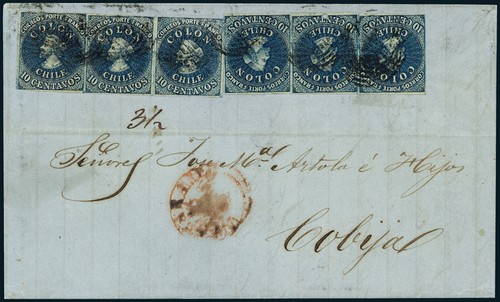 CORREOS PORTE FRANCO
COLON
CHILE
10 CENTAVOS
CORREOS PORTE FRANCO
COLON
CHILE
10 CENTAVOS
CORREOS PORTE FRANCO
COLON
CHILE
10 CENTAVOS
CORREOS PORTE FRANCO
COLON
CHILE
10 CENTAVOS
CORREOS PORTE FRANCO
COLON
CHILE
10 CENTAVOS
CORREOS PORTE FRANCO
COLON
CHILE
10 CENTAVOS
3 1/2
Señores Jose Ma. Artola é Hijos
Cobija